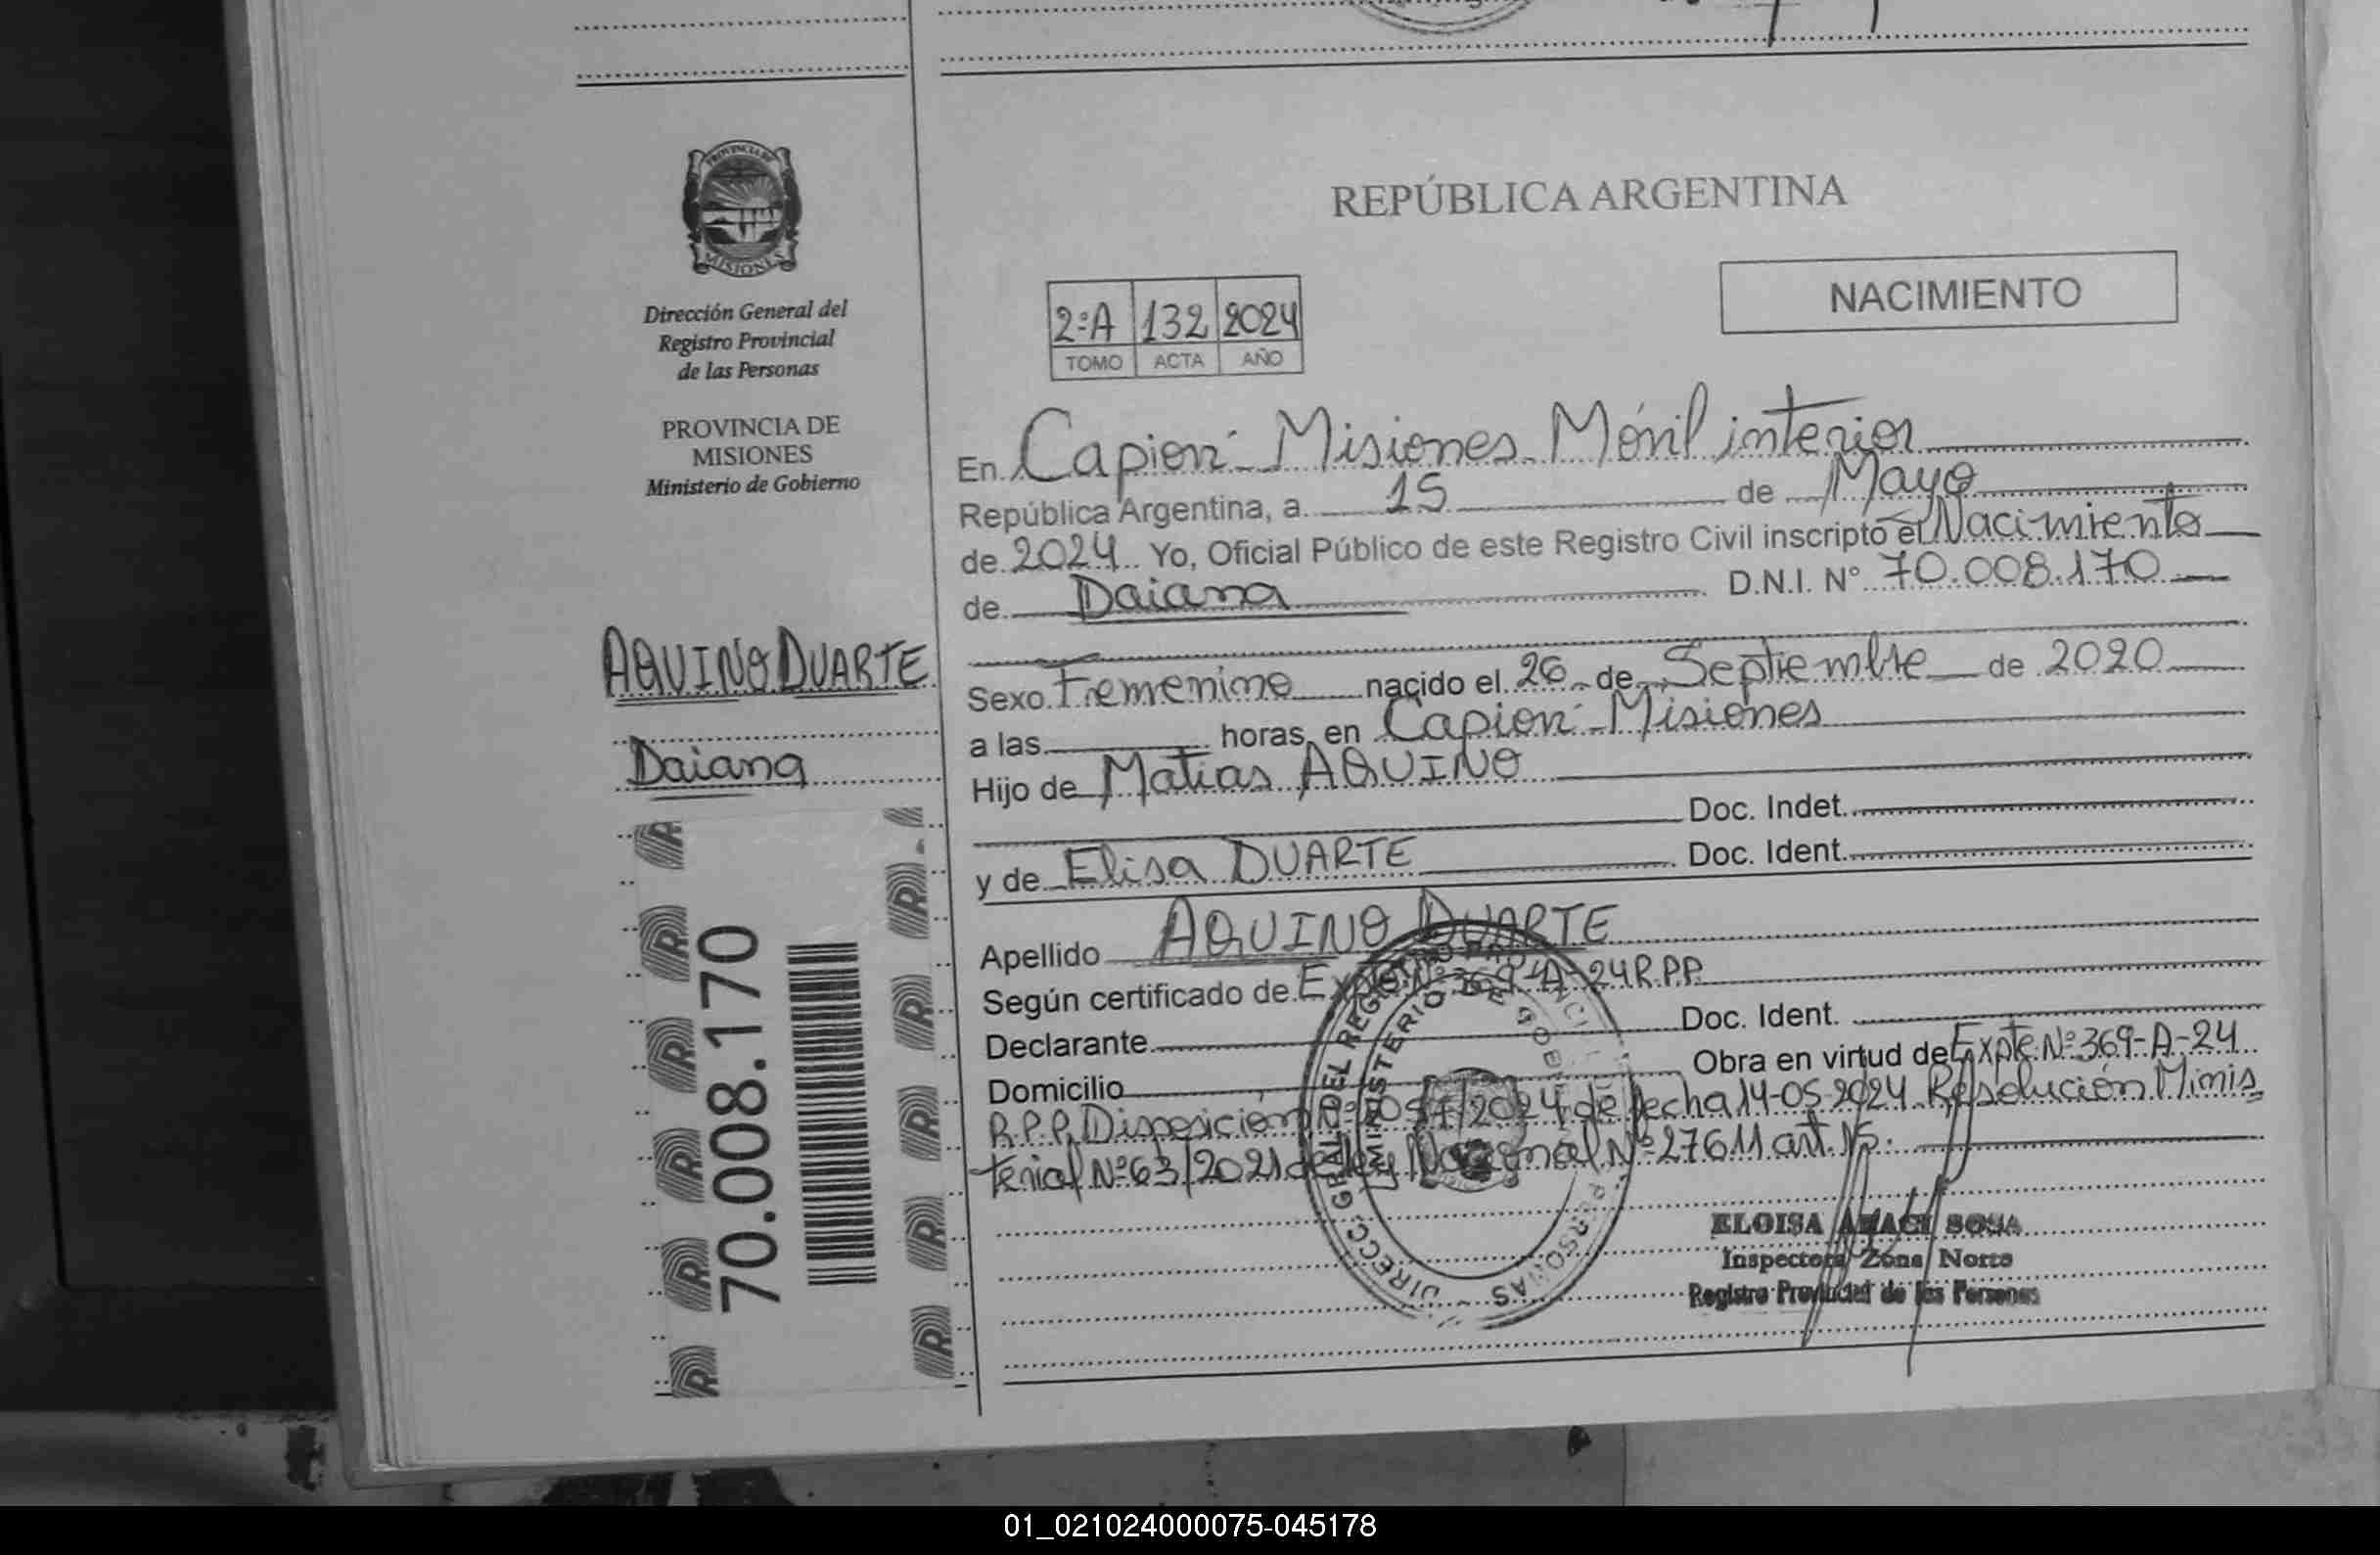 PROVINCIA DE
MISIONES
Dirección General del
Registro Provincial
de las Personas
PROVINCIA DE
MISIONES
Ministerio de Gobierno
AQUINO DUARTE
Daiana
70.008.170
REPÚBLICA ARGENTINA
NACIMIENTO
2ºA 132 2024
TOMO ACTA AÑO
En Capioví - Misiones Móvil interior
República Argentina, a 15 de Mayo
de 2024 Yo, Oficial Público de este Registro Civil inscripto el Nacimiento
de Daiana D.N.I. Nº 70.008.170
Sexo Femenino nacido el 26 de Septiembre de 2020
a las horas, en Capioví - Misiones
Hijo de Matias AQUINO
Doc. Indet.
y de Elisa DUARTE Doc. Ident.
Apellido AQUINO DUARTE
Según certificado de Expte Nº 369-A-24 R.P.P.
Declarante Doc. Ident.
Domicilio Obra en virtud de Expte. Nº 369-A-24
R.P.P. Disposición Nº /2024 de fecha 14-05-2024 Resolución Minis
terial Nº 63/2021 de ley Nacional Nº 27611 art. 15.
DIRECC. GRAL. DEL REGISTRO PROVINCIAL DE PERSONAS
MINISTERIO DE GOBIERNO
ELOISA SOSA
Inspectora Zona Norte
Registro Provincial de las Personas
01_021024000075-045178